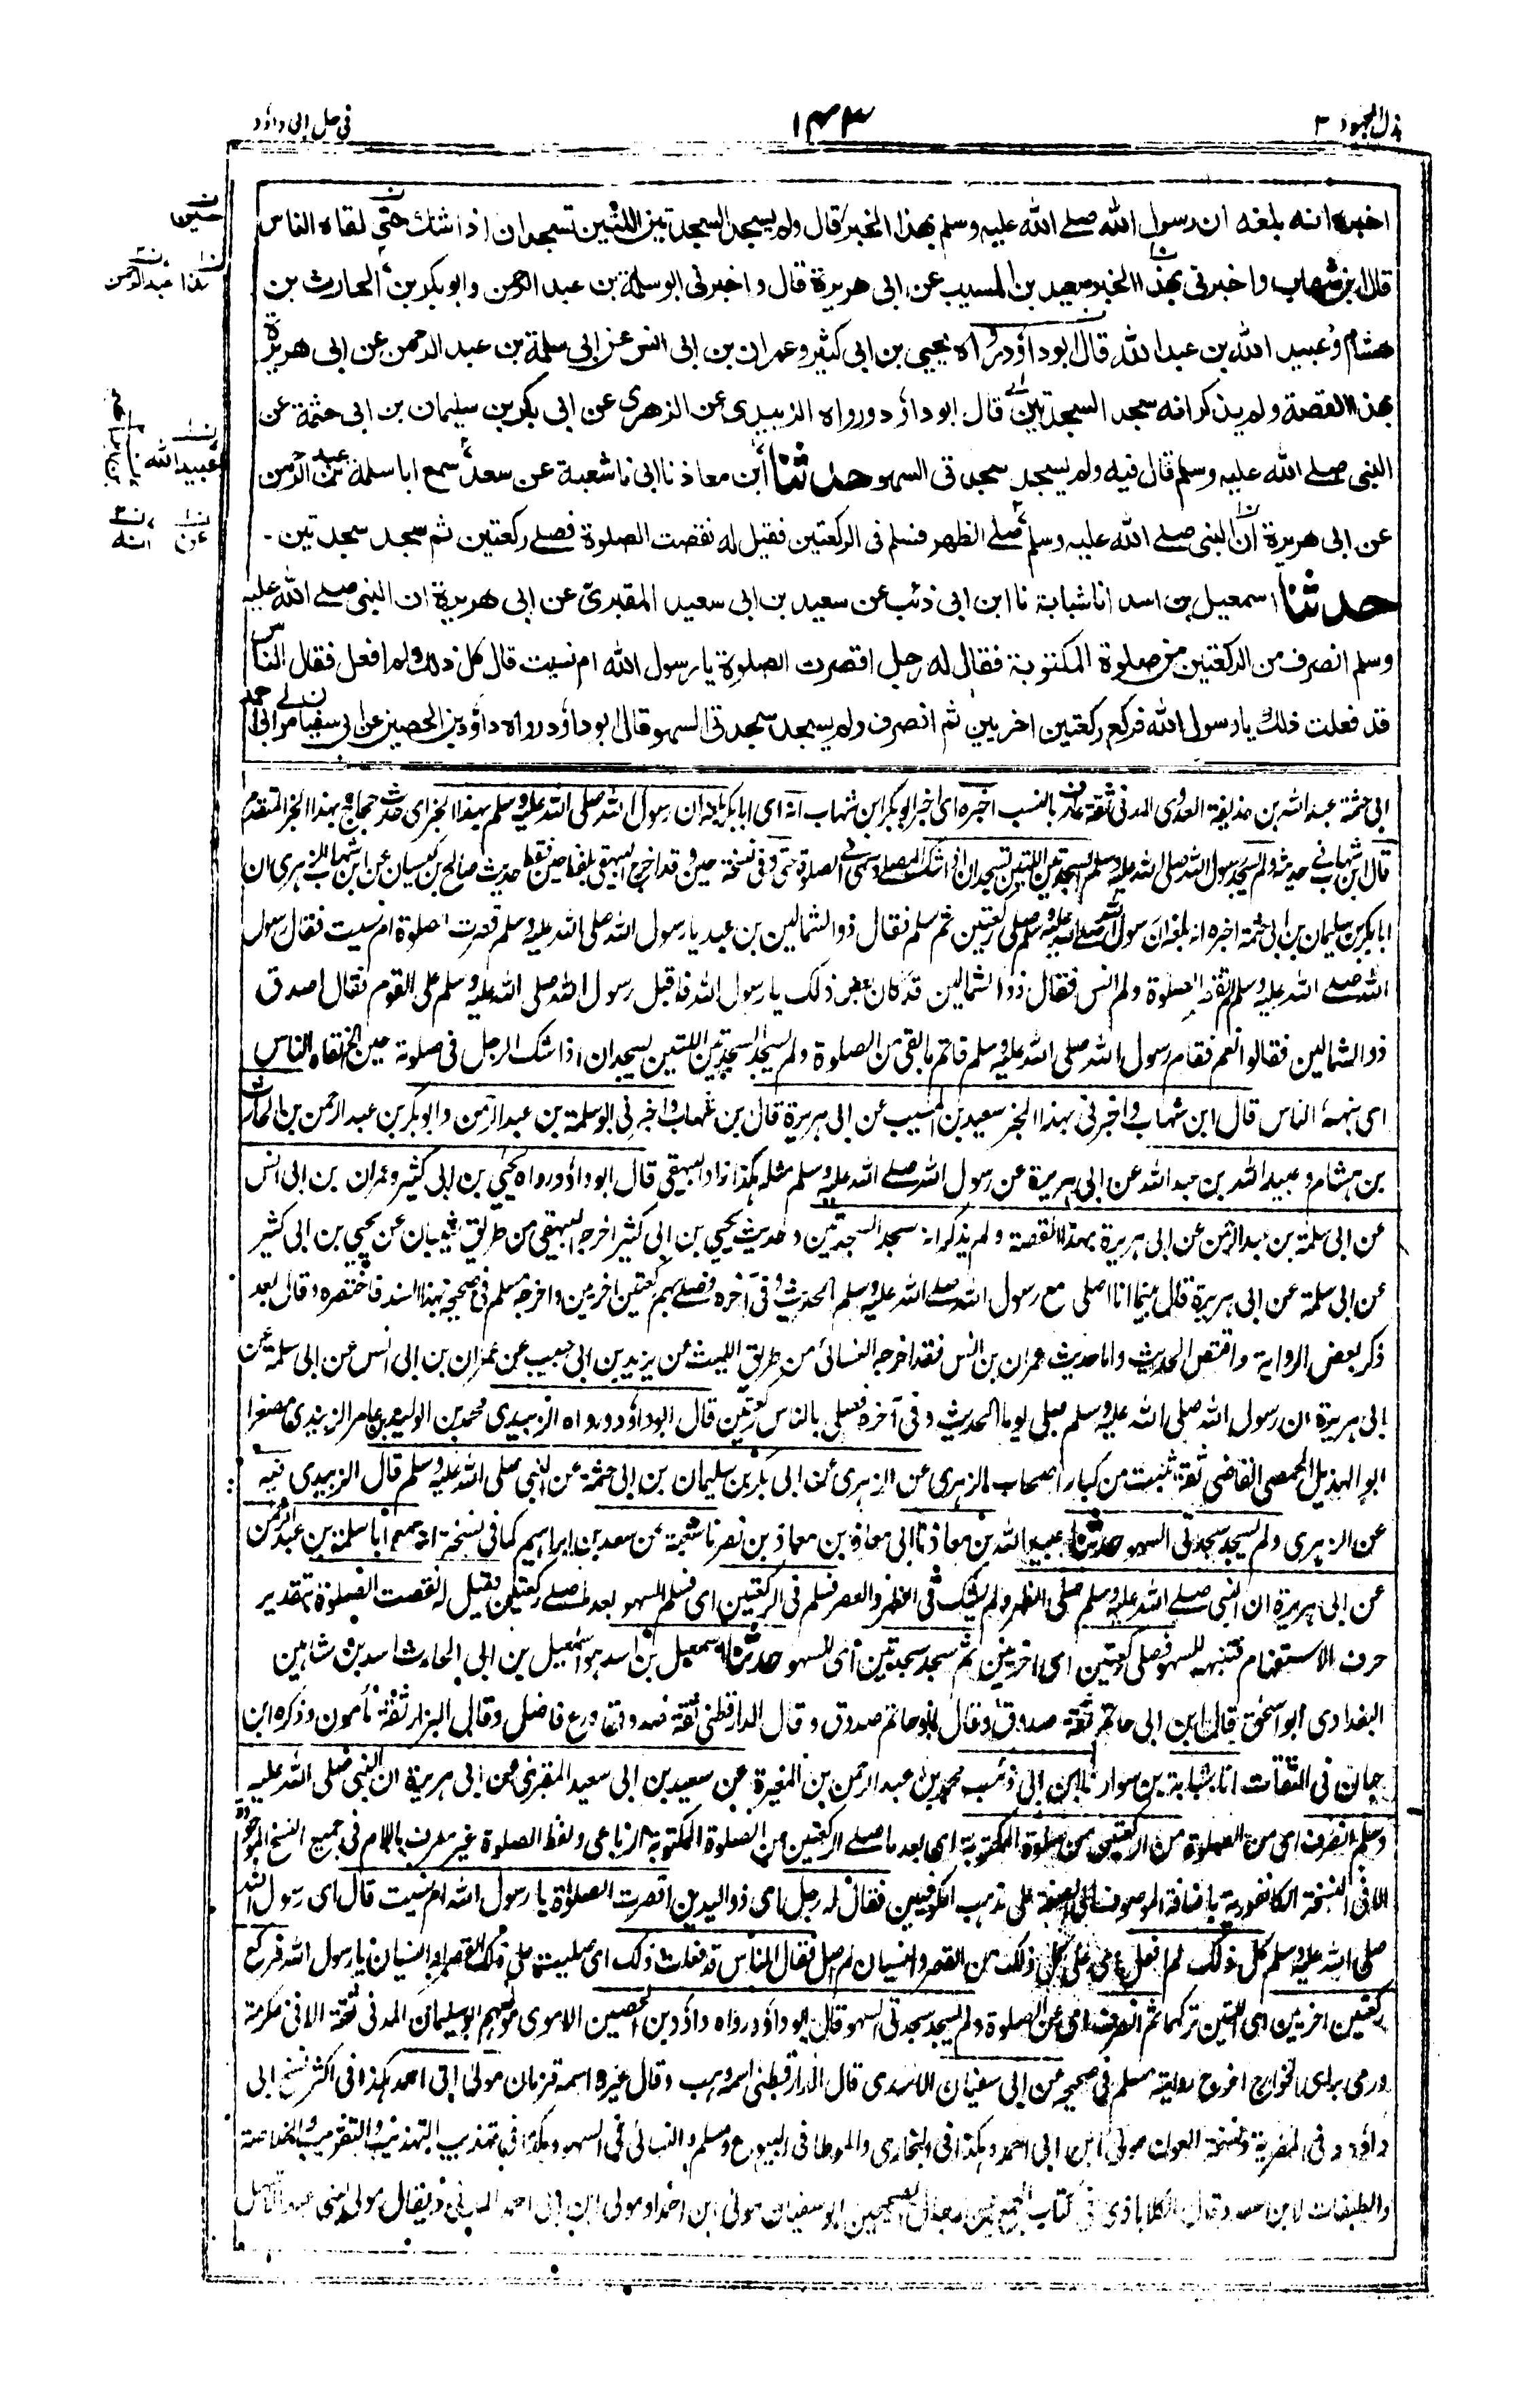 بذل المجهود ٣
١٤٣
فی حل ابی داؤد
اخبره انه بلغه ان رسول الله صلے الله علیه وسلم بهذا الخبر قال ولم یسجد السجدتین اللتین تسجدان اذا شك حتی لقاه الناس
قال ابن شهاب واخبرنی بهذا الخبر سعید بن المسیب عن ابی هریرة قال واخبرنی ابو سلمة بن عبد الرحمن وابو بکر بن الحارث بن
هشام وعبید الله بن عبد الله قال ابو داؤد رواه یحیی بن ابی کثیر وعمران بن ابی انس عن ابی سلمة بن عبد الرحمن عن ابی هریرة
بهذا القصة ولم یذکر انه سجد السجدتین قال ابو داؤد ورواه الزبیدی عن الزهری عن ابی بکر بن سلیمان بن ابی حثمة عن
النبی صلے الله علیه وسلم قال فیه ولم یسجد سجدتی السهو حدثنا ابن معاذ نا ابی نا شعبة عن سعد سمع ابا سلمة بن عبد الرحمن
عن ابی هریرة ان النبی صلے الله علیه وسلم صلے الظهر فسلم فی الرکعتین فقیل له نقصت الصلوة فصلے رکعتین ثم سجد سجدتین -
حدثنا اسمعیل بن اسد انا شبابة نا ابن ابی ذئب عن سعید بن ابی سعید المقبری عن ابی هریرة ان النبی صلے الله علیه
وسلم انصرف من الرکعتین من صلوة المکتوبة فقال له رجل اقصرت الصلوة یا رسول الله ام نسیت قال کل ذلك ولم افعل فقال الناس
قد فعلت ذلك یا رسول الله فرکع رکعتین اخریین ثم انصرف ولم یسجد سجدتی السهو قال ابو داؤد رواه داؤد بن الحصین عن ابی سفیان مولی ابی احمد
ابی حثمة عبد الله بن حذیفة العدوی المدنی ثقة عارف بالنسب اخبره ای اخبر ابو بکر ابن شهاب انه ای ابا بکر بلغه ان رسول الله صلی الله علیه وسلم بهذا الخبر ای حدث حجاج بهذا الخبر المتقدم
قال ابن شهاب فی حدیثه ولم یسجد رسول الله صلی الله علیه وسلم السجدتین اللتین تسجدان اذا شك المصلے فی الصلوة حتی وفی نسخة حین وقد اخرج البیهقی بلفظ حین فقط حدیث صالح بن کیسان عن ابن شهاب الزهری ان
ابا بکر بن سلیمان بن ابی حثمة اخبره انه بلغه ان رسول الله صلے الله علیه وسلم صلی رکعتین ثم سلم فقال ذو الشمالین بن عبد یا رسول الله صلی الله علیه وسلم قصرت الصلوة ام نسیت فقال رسول
الله صلے الله علیه وسلم لم تقصر الصلوة ولم انس فقال ذو الشمالین قد کان بعض ذلك یا رسول الله فاقبل رسول الله صلی الله علیه وسلم علی القوم فقال اصدق
ذو الشمالین فقالوا نعم فقام رسول الله صلی الله علیه وسلم فاتم ما بقی من الصلوة ولم یسجد السجدتین اللتین یسجدان اذا شك الرجل فی صلوته حین لقاه الناس
ای ینبهه الناس قال ابن شهاب واخبرنی بهذا الخبر سعید بن المسیب عن ابی هریرة قال بن شهاب واخبرنی ابو سلمة بن عبد الرحمن وابو بکر بن عبد الرحمن بن الحارث
بن هشام وعبید الله بن عبد الله عن ابی هریرة عن رسول الله صلے الله علیه وسلم مثله هکذا زاد البیهقی قال ابو داؤد رواه یحیی بن ابی کثیر وعمران بن ابی انس
عن ابی سلمة بن عبد الرحمن عن ابی هریرة بهذا القصة ولم یذکر انه سجد السجدتین وحدیث یحیی بن ابی کثیر اخرجه البیهقی من طریق شیبان عن یحیی بن ابی کثیر
عن ابی سلمة عن ابی هریرة قال بینما انا اصلی مع رسول الله صلے الله علیه وسلم الحدیث وفی آخره فصلے بهم رکعتین اخریین واخرجه مسلم فی صحیحه بهذا السند فاختصره وقال بعد
ذکر بعض الروایة واقتص الحدیث واما حدیث عمران بن انس فقد اخرجه النسائی من طریق اللیث عن یزید بن ابی حبیب عن عمران بن ابی انس عن ابی سلمة عن
ابی هریرة ان رسول الله صلی الله علیه وسلم صلی یوما الحدیث وفی آخره فصلی بالناس رکعتین قال ابو داؤد ورواه الزبیدی محمد بن الولید بن عامر الزبیدی مصغرا
ابو الهذیل الحمصی القاضی ثقة ثبت من کبار اصحاب الزهری عن الزهری عن ابی بکر بن سلیمان بن ابی حثمة عن النبی صلی الله علیه وسلم قال الزبیدی فیه
عن الزهری ولم یسجد سجدتی السهو حدثنا عبید الله بن معاذ نا ابی معاذ بن معاذ بن نصر نا شعبة عن سعد بن ابراهیم کما فی نسخة انه سمع ابا سلمة بن عبد الرحمن
عن ابی هریرة ان النبی صلے الله علیه وسلم صلی الظهر ولم یشك فی الظهر والعصر فسلم فی الرکعتین ای فسلم للسهو بعد ما صلے رکعتین فقیل له نقصت الصلوة بتقدیر
حرف الاستفهام فتنبه للسهو فصلی رکعتین ای اخریین ثم سجد سجدتین ای للسهو حدثنا اسمعیل بن اسد هو اسمعیل بن ابی الحارث اسد بن شاهین
البغدادی ابو اسحٰق قال ابن ابی حاتم ثقة صدوق وقال ابو حاتم صدوق وقال الدارقطنی ثقة صدوق ورع فاضل وقال البزار ثقة مأمون وذکره ابن
حبان فی الثقات انا شبابة بن سوار نا ابن ابی ذئب محمد بن عبد الرحمن بن المغیرة عن سعید بن ابی سعید المقبری عن ابی هریرة ان النبی صلی الله علیه
وسلم انصرف ای من الصلوة من الرکعتین من صلوة المکتوبة ای بعد ما صلے الرکعتین من الصلوة المکتوبة الرباعی ولفظ الصلوة غیر معرف باللام فی جمیع النسخ الموجودة
الا فی النسخة الکانفوریة باضافة الموصوف الی الصفة علی مذهب الکوفیین فقال له رجل ای ذو الیدین اقصرت الصلوة یا رسول الله ام نسیت قال ای رسول الله
صلی الله علیه وسلم کل ذلك لم افعل ای علی کل ذلك من القصر والنسیان لم اصل فقال الناس قد فعلت ذلك ای صلیت علی ذلك القصر او النسیان یا رسول الله فرکع
رکعتین اخریین ای اللتین ترکهما ثم انصرف ای عن الصلوة ولم یسجد سجدتی السهو قال ابو داؤد رواه داؤد بن الحصین الاموی مولاهم ابو سلیمان المدنی ثقة الا فی عکرمة
ورمی برای الخوارج اخرج روایته مسلم فی صحیحه عن ابی سفیان الاسدی قال الدارقطنی اسمه وهب وقال غیره اسمه قزمان مولی ابی احمد هکذا فی اکثر نسخ ابی
داؤد وفی المصریة ونسخة العون مولی ابن ابی احمد وهکذا فی البخاری والموطا فی البیوع ومسلم والنسائی فی السهو وهکذا فی تهذیب التهذیب والتقریب والخلاصة
والطبقات لابن سعد وقال الکلاباذی فی کتاب الجمع بین رجال الصحیحین ابو سفیان مولی ابن احمد او مولی ابن ابی احمد المدنی ویقال مولی لبنی عبد الاشهل
حین
هذا عبد الرحمن
عبید الله
عن انه